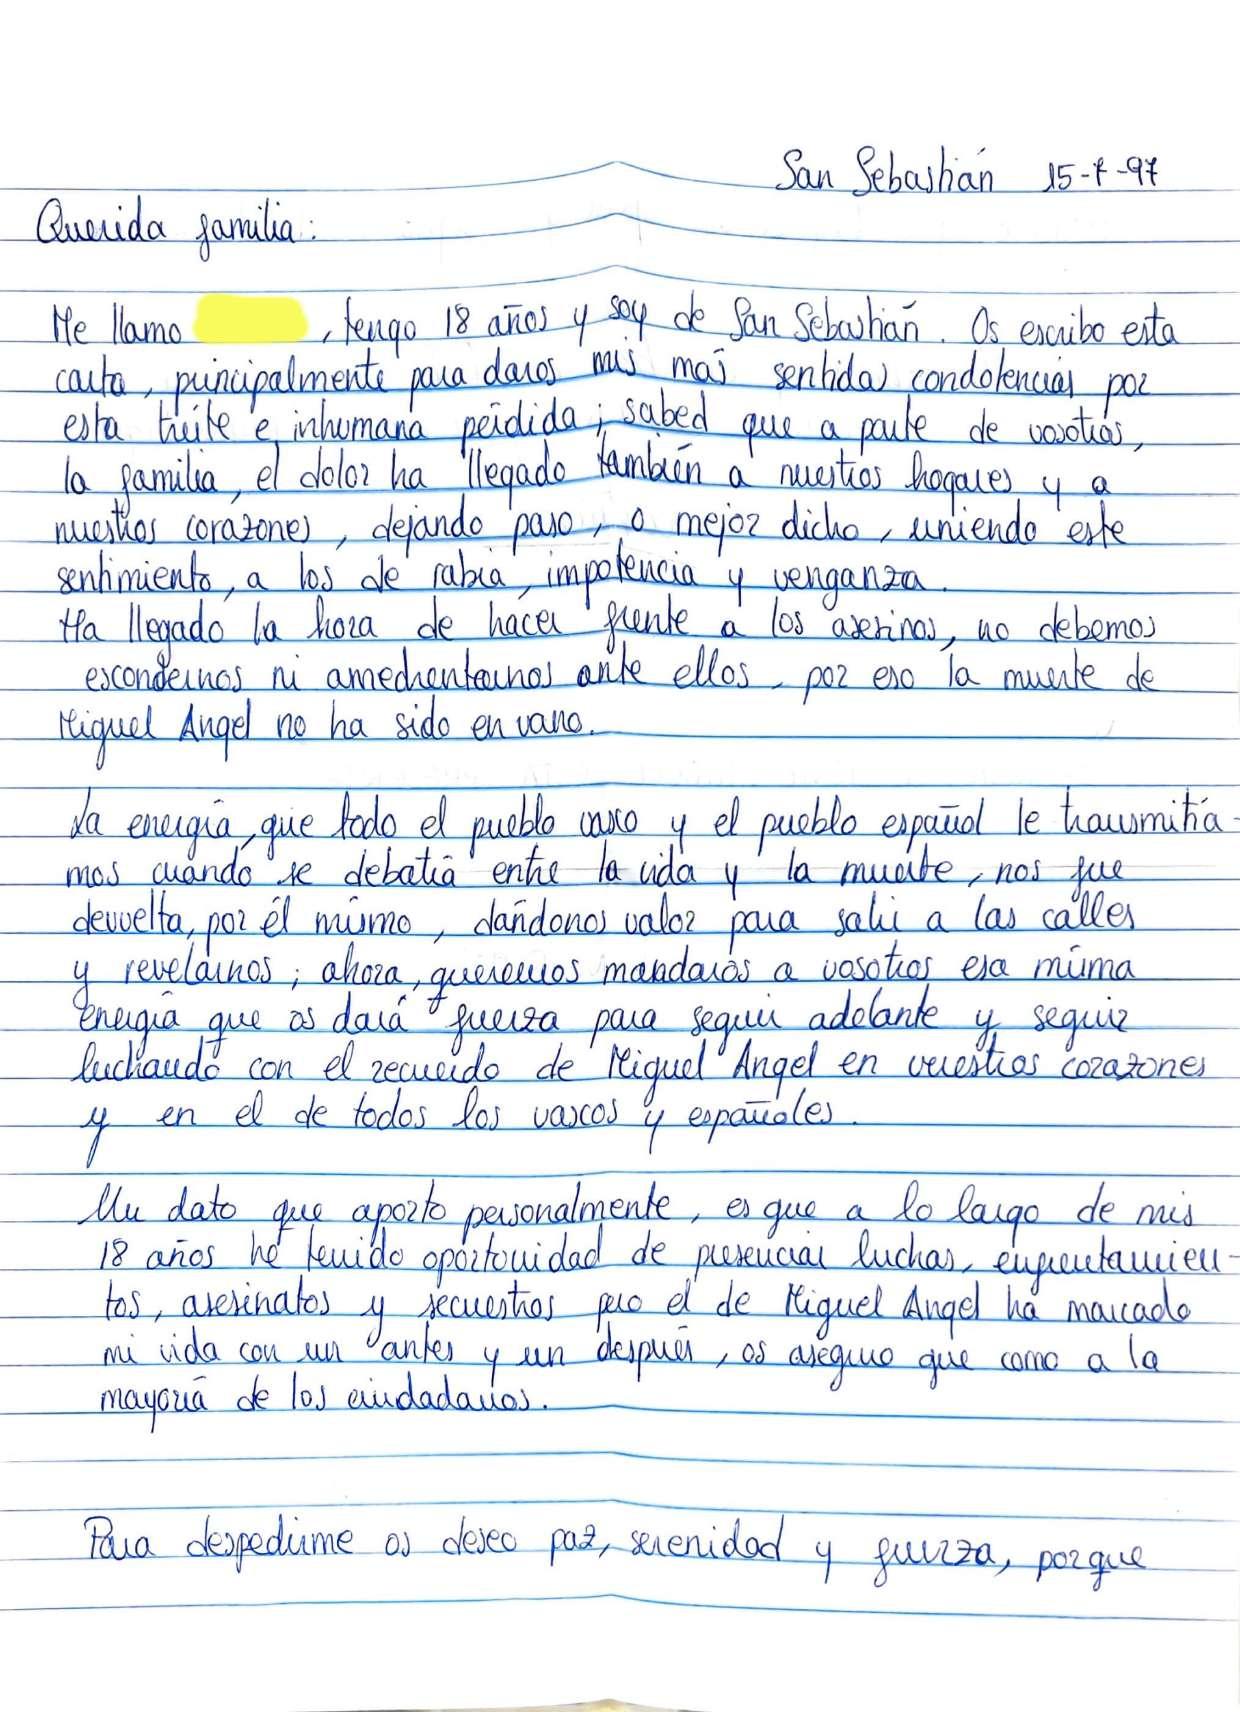 San Sebastián 15-7-97
Querida familia:
Me llamo , tengo 18 años y soy de San Sebastián. Os escribo esta
carta, principalmente para daros mis más sentidas condolencias por
esta triste e inhumana pérdida; sabed que a parte de vosotros,
la familia, el dolor ha llegado también a nuestros hogares y a
nuestros corazones, dejando paso, o mejor dicho, uniendo este
sentimiento, a los de rabia, impotencia y venganza.
Ha llegado la hora de hacer frente a los asesinos, no debemos
escondernos ni amedrentarnos ante ellos, por eso la muerte de
Miguel Angel no ha sido en vano.
La energía, que todo el pueblo vasco y el pueblo español le transmitía-
mos cuando se debatía entre la vida y la muerte, nos fue
devuelta, por él mismo, dándonos valor para salir a las calles
y revelarnos; ahora, queremos mandaros a vosotros esa misma
energía que os dará fuerza para seguir adelante y seguir
luchando con el recuerdo de Miguel Angel en vuestros corazones
y en el de todos los vascos y españoles.
Un dato que aporto personalmente, es que a lo largo de mis
18 años he tenido oportunidad de presenciar luchas, enfrentamien-
tos, asesinatos y secuestros pero el de Miguel Angel ha marcado
mi vida con un antes y un después, os aseguro que como a la
mayoría de los ciudadanos.
Para despedirme os deseo paz, serenidad y fuerza, porque